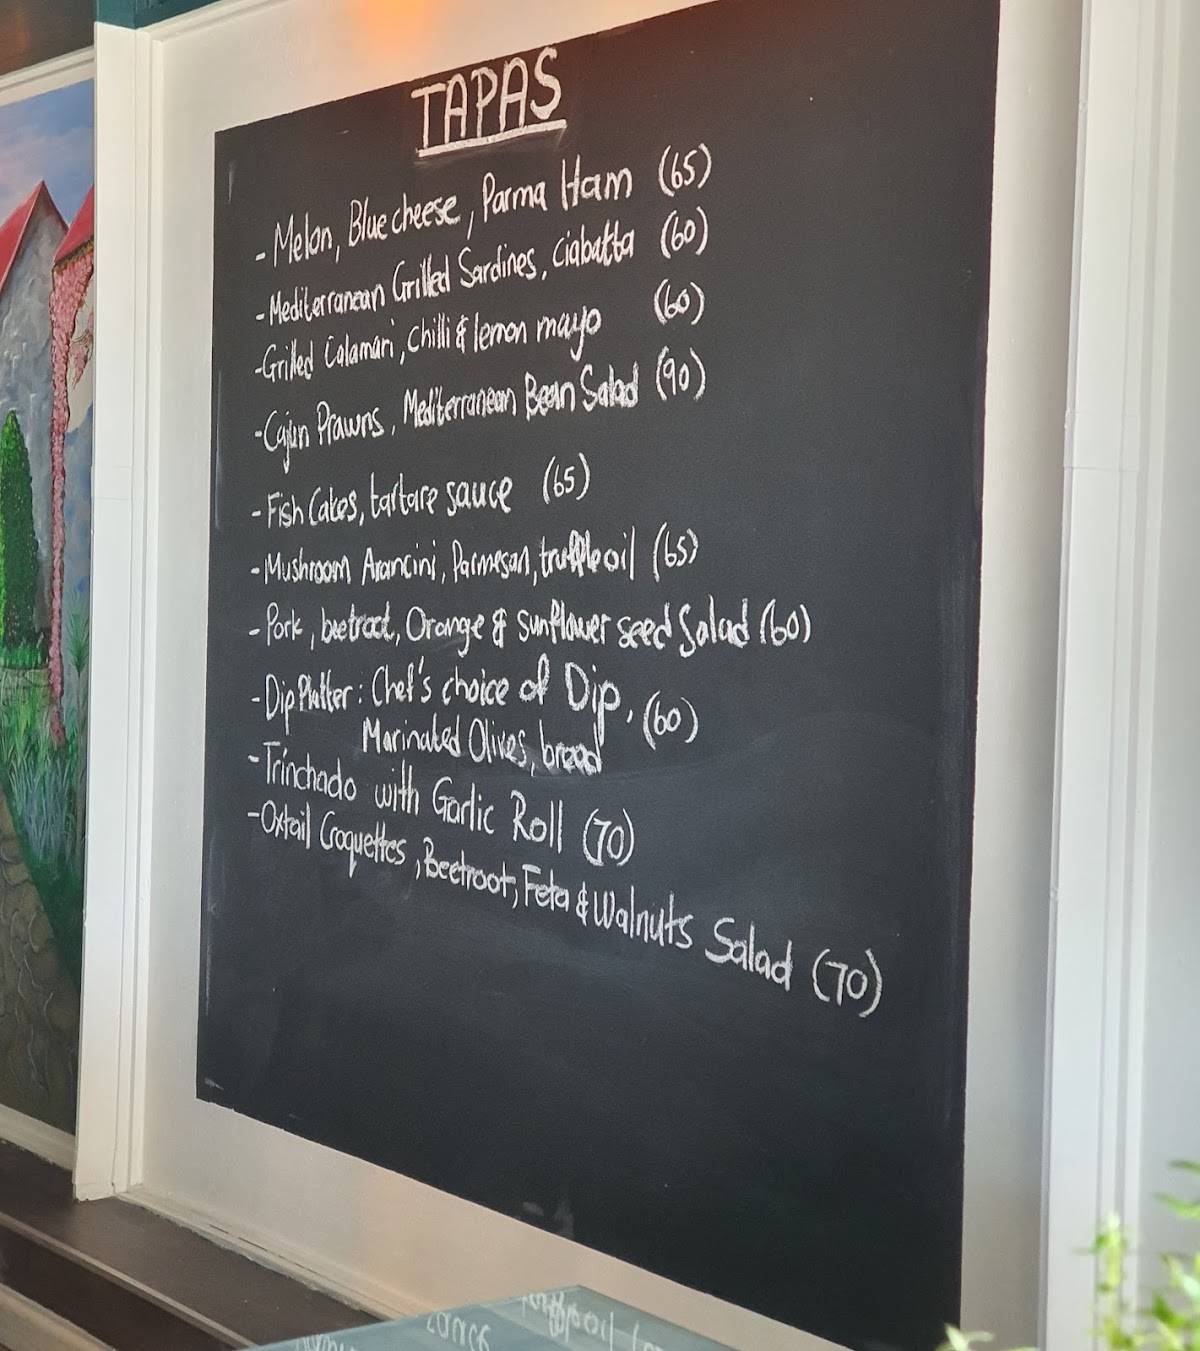 TAPAS
- Melon, Blue cheese, Parma Ham (65)
- Mediterranean Grilled Sardines, Ciabatta (60)
- Grilled Calamari, Chilli & lemon mayo (60)
- Cajun Prawns, Mediterranean Bean Salad (90)
- Fish Cakes, tartare sauce (65)
- Mushroom Arancini, Parmesan, truffle oil (65)
- Pork, beetroot, Orange & sunflower seed Salad (60)
- Dip Platter: Chef's choice of Dip, (60)
Marinated Olives, bread
- Trinchado with Garlic Roll (70)
- Oxtail Croquettes, Beetroot, Feta & Walnuts Salad (70)